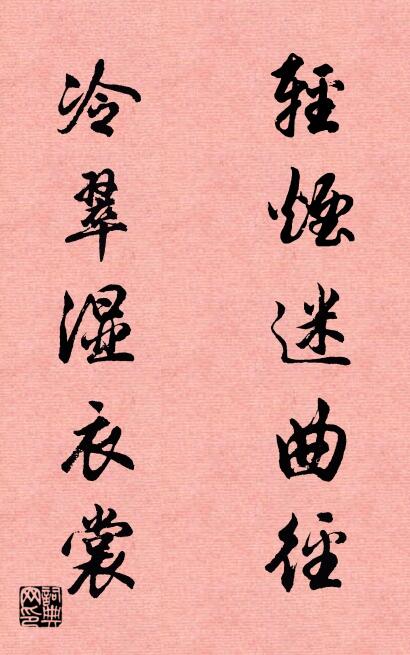 輕煙迷曲徑
冷翠濕衣裳
詞典網印